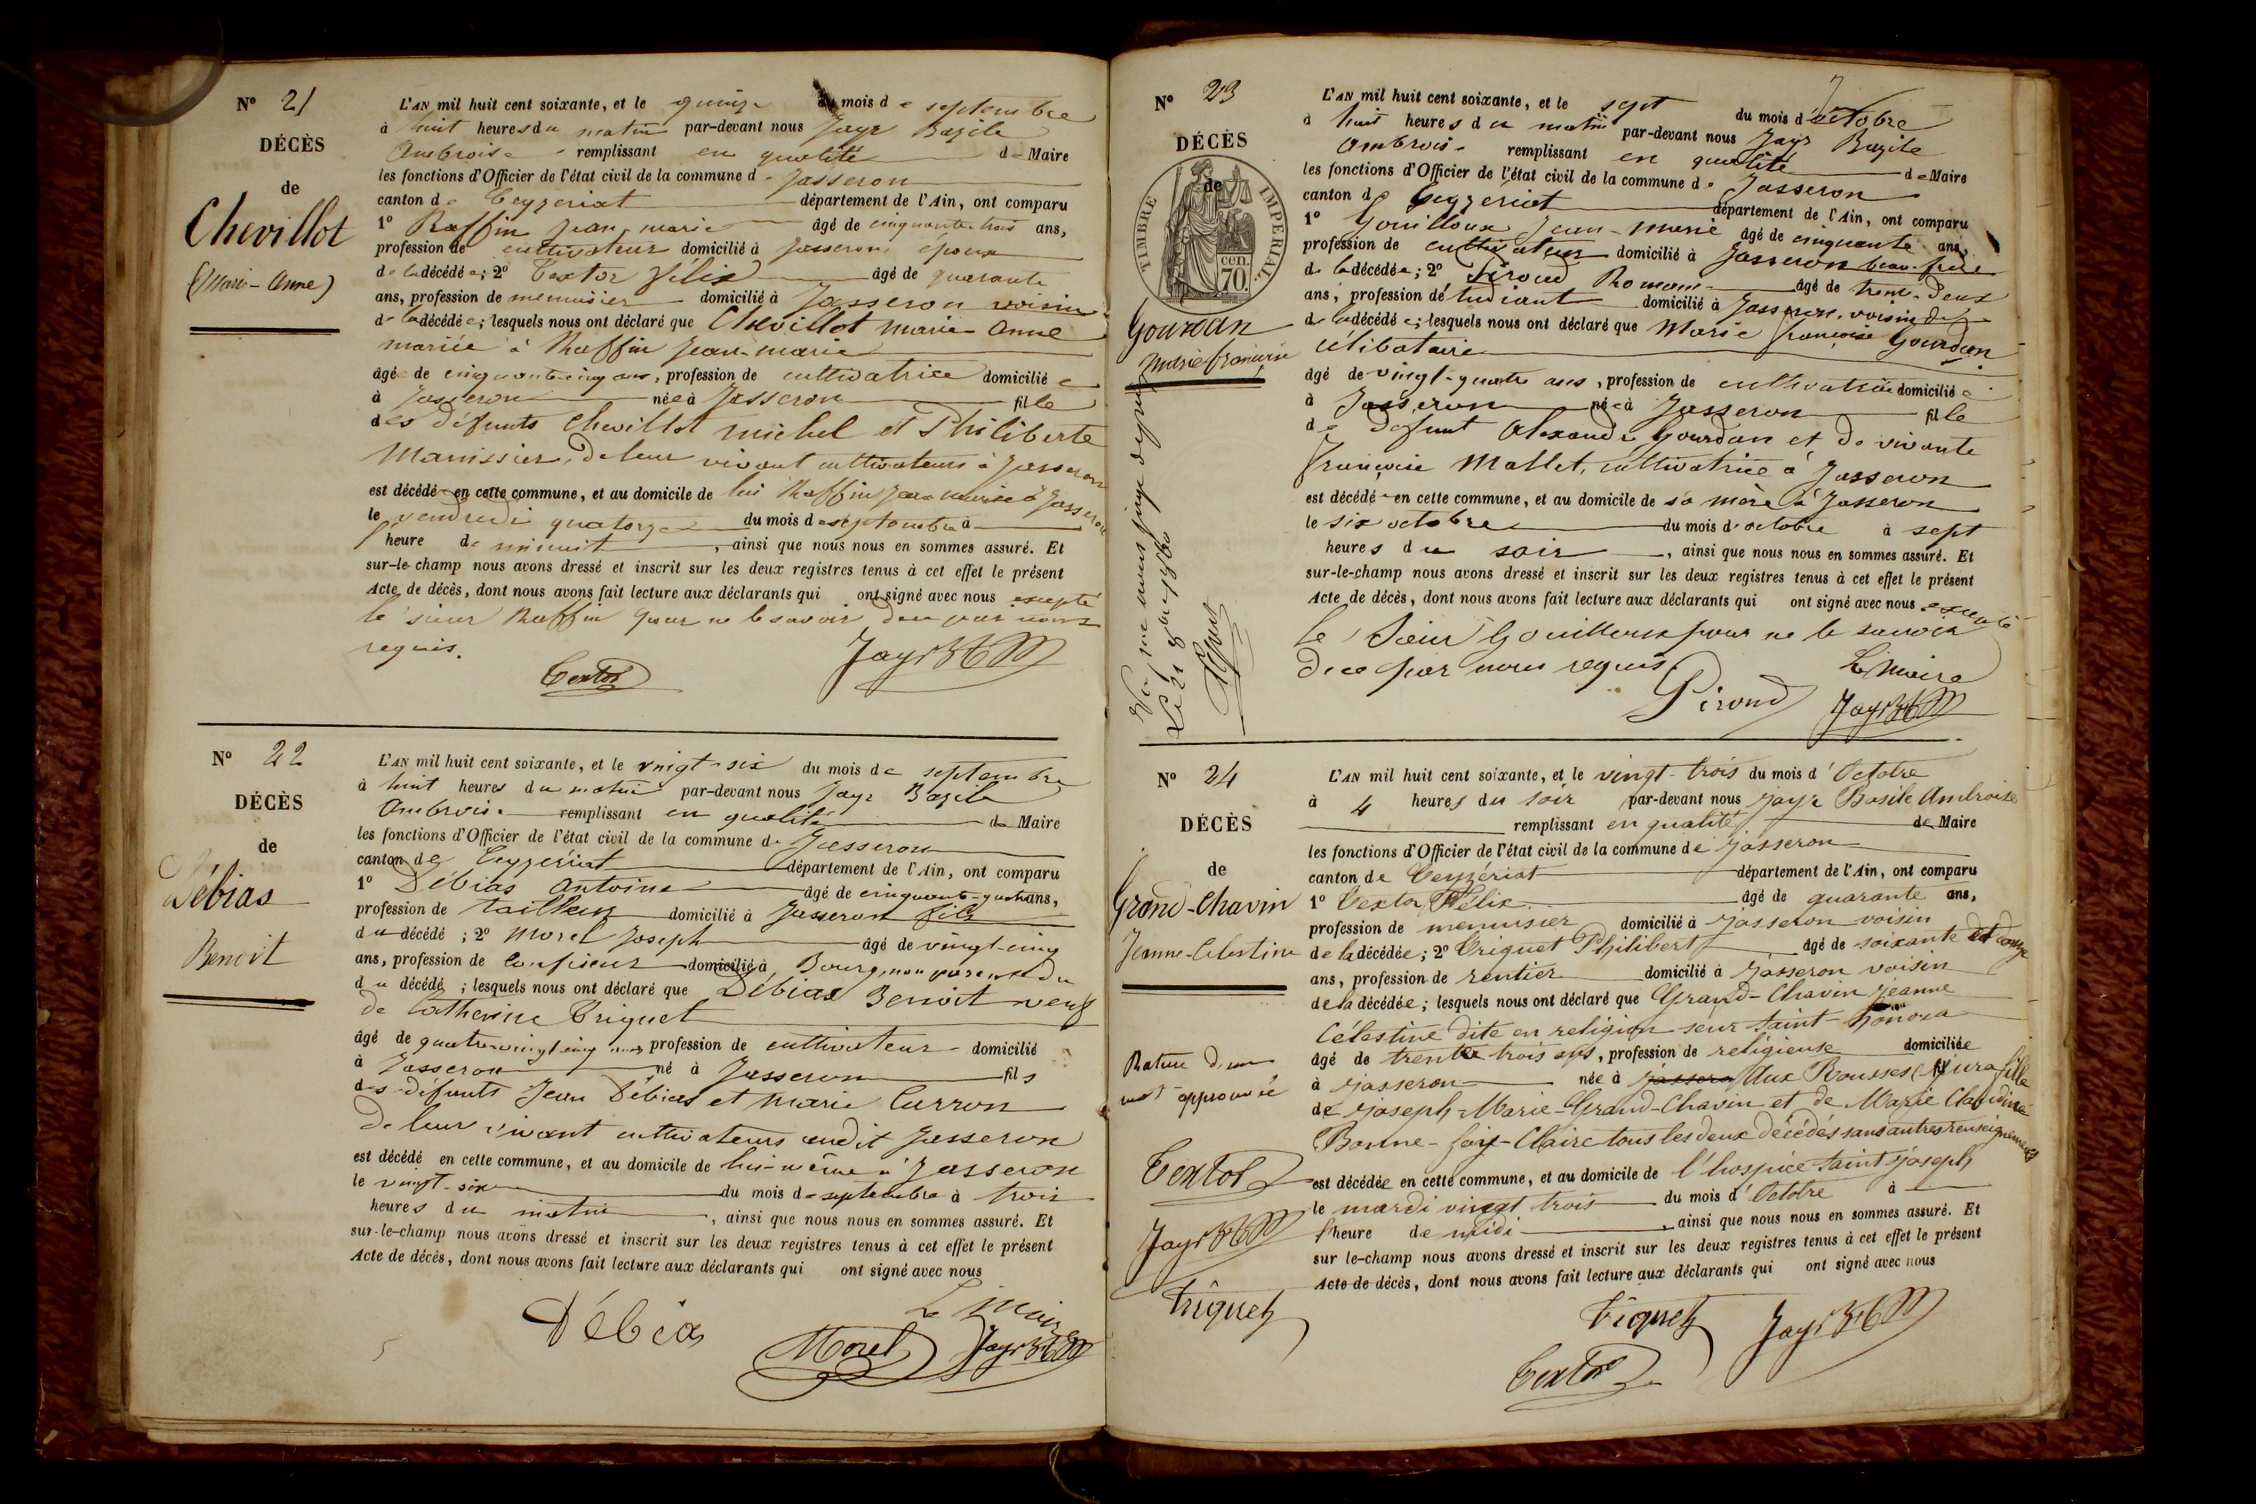 Nº 21
DÉCÈS
de
Chevillot
(Marie-Anne)
L'AN mil huit cent soixante, et le quinze du mois de septembre
à huit heures du matin par-devant nous Jayr Bazile
Ambroise remplissant en qualité de Maire
les fonctions d'Officier de l'état civil de la commune de Jasseron
canton de Ceyzeriat département de l'Ain, ont comparu
1º Raffin Jean marie âgé de cinquante-trois ans,
profession de cultivateur domicilié à Jasseron, époux
de la décédée; 2º Textor Félix âgé de quarante
ans, profession de menuisier domicilié à Jasseron voisin
de la décédée; lesquels nous ont déclaré que Chevillot Marie Anne
mariée à Raffin Jean-marie
âgée de cinquante-cinq ans, profession de cultivatrice domiciliée
à Jasseron née à Jasseron fille
des défunts Chevillot Michel et Philiberte
Manissier, de leur vivant cultivateurs à Jasseron
est décédée en cette commune, et au domicile de lui Raffin Jean marie à Jasseron
le vendredi quatorze du mois de septembre à
l'heure de minuit, ainsi que nous nous en sommes assuré. Et
sur-le-champ nous avons dressé et inscrit sur les deux registres tenus à cet effet le présent
Acte de décès, dont nous avons fait lecture aux déclarants qui ont signé avec nous excepté
le sieur Raffin pour ne le savoir, de ce par nous
requis.
Textor Jayr
Nº 22
DÉCÈS
de
Débias
Benoit
L'AN mil huit cent soixante, et le vingt-six du mois de septembre
à huit heures du matin par-devant nous Jayr Bazile
Ambroise remplissant en qualité de Maire
les fonctions d'Officier de l'état civil de la commune de Jasseron
canton de Ceyzériat département de l'Ain, ont comparu
1º Débias Antoine âgé de cinquante-quatre ans,
profession de tailleur domicilié à Jasseron fils
du décédé; 2º Morel Joseph âgé de vingt-cinq
ans, profession de Confiseur domicilié à Bourg, non parent du
du décédé; lesquels nous ont déclaré que Débias Benoit veuf
de Catherine Triquet
âgé de quatre-vingt-cinq ans profession de cultivateur domicilié
à Jasseron né à Jasseron fils
des défunts Jean Débias et Marie Carron
De leur vivant cultivateurs audit Jasseron
est décédé en cette commune, et au domicile de lui-même à Jasseron
le vingt-six du mois de septembre à trois
heures du matin, ainsi que nous nous en sommes assuré. Et
sur-le-champ nous avons dressé et inscrit sur les deux registres tenus à cet effet le présent
Acte de décès, dont nous avons fait lecture aux déclarants qui ont signé avec nous
Le Maire
Débias
Morel Jayr
Nº 23
DÉCÈS
de
TIMBRE IMPÉRIAL.
cen. 70.
Gourdan
Marie françoise
L'AN mil huit cent soixante, et le sept du mois d'octobre
à huit heures du matin par-devant nous Jayr Bazile
Ambroise remplissant en qualité de Maire
les fonctions d'Officier de l'état civil de la commune de Jasseron
canton de Ceyzériat département de l'Ain, ont comparu
1º Gouilloux Jean-marie âgé de cinquante ans,
profession de cultivateur domicilié à Jasseron beau-frère
de la décédée; 2º Piroud Romain âgé de trente-deux
ans, profession d'étudiant domicilié à Jasseron, voisin de
de la décédée; lesquels nous ont déclaré que Marie françoise Gourdan
célibataire
âgé de vingt-quatre ans, profession de cultivatrice domiciliée
à Jasseron née à Jasseron fille
de défunt Alexandre Gourdan et de vivante
Françoise Mallet, cultivatrice à Jasseron
est décédée en cette commune, et au domicile de sa mère à Jasseron
le six octobre du mois d'octobre à sept
heures du soir, ainsi que nous nous en sommes assuré. Et
sur-le-champ nous avons dressé et inscrit sur les deux registres tenus à cet effet le présent
Acte de décès, dont nous avons fait lecture aux déclarants qui ont signé avec nous excepté
le Sieur Gouilloux pour ne le savoir
de ce par nous requis
Le Maire
Piroud Jayr
Nº 24
DÉCÈS
de
Grand-Chavin
Jeanne-Célestine
Rature d'un
mot approuvée
Textor
Jayr
Triquet
L'AN mil huit cent soixante, et le vingt-trois du mois d'Octobre
à 4 heures du soir par-devant nous Jayr Basile Ambroise
remplissant en qualité de Maire
les fonctions d'Officier de l'état civil de la commune de Jasseron
canton de Ceyzériat département de l'Ain, ont comparu
1º Textor Félix âgé de quarante ans,
profession de menuisier domicilié à Jasseron voisin
de la décédée; 2º Triquet Philibert âgé de soixante et douze
ans, profession de rentier domicilié à Jasseron voisin
de la décédée; lesquels nous ont déclaré que Grand-Chavin Jeanne
Célestine dite en religion seur Saint-Honora
âgé de trente trois ans, profession de religieuse domiciliée
à Jasseron née à Jasseron aux Rousses (Jura) fille
de Joseph-Marie-Grand-Chavin et de Marie Claudine
Bonne-foy-Claire tous les deux décédés sans autres renseignements
est décédée en cette commune, et au domicile de l'hospice Saint Joseph
le mardi vingt trois du mois d'Octobre à
l'heure de midi, ainsi que nous nous en sommes assuré. Et
sur le-champ nous avons dressé et inscrit sur les deux registres tenus à cet effet le présent
Acte de décès, dont nous avons fait lecture aux déclarants qui ont signé avec nous
Triquet Jayr
Textor